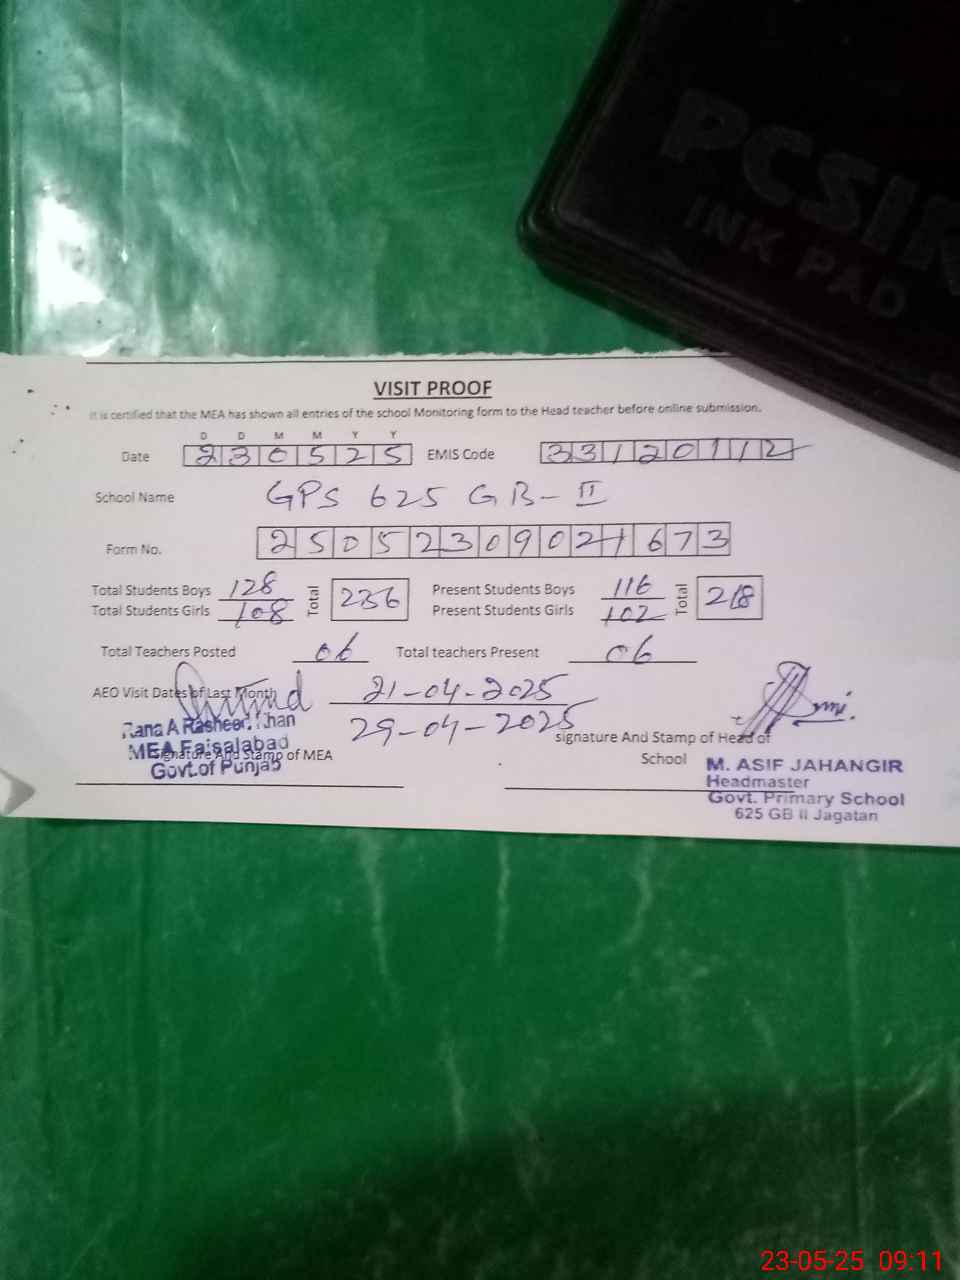 PCSIR
INK PAD
VISIT PROOF
It is certified that the MEA has shown all entries of the school Monitoring form to the Head teacher before online submission.
D D M M Y Y
Date 230525 EMIS Code 33120112
School Name GPS 625 GB-II
Form No. 25052309021673
Total Students Boys 128 Total 236 Present Students Boys 116 Total 218
Total Students Girls 108 Present Students Girls 102
Total Teachers Posted 06 Total teachers Present 06
AEO Visit Dates of Last Month 21-04-2025
29-04-2025
Rana A Rasheed Khan
MEA Faisalabad
Govt.of Punjab
Signature And Stamp of MEA
signature And Stamp of Head of
School
M. ASIF JAHANGIR
Headmaster
Govt. Primary School
625 GB II Jagatan
23-05-25 09:11